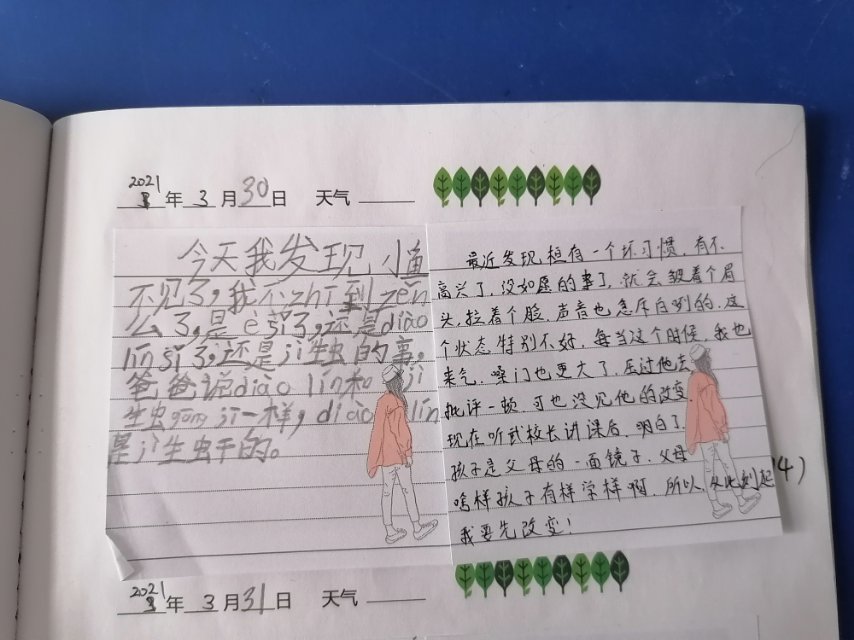 2021年 3月30日 天气
今天我发现小鱼
不见了,我不zhī到zěn
么了,是è sǐ了,还是diào
lín sǐ了,还是jì生虫的事,
爸爸说diào lín和jì
生虫gàn jī一样,diào lín
是jì生虫干的。
最近发现桓有一个坏习惯,有不
高兴了,没如愿的事了,就会皱着个眉
头,拉着个脸,声音也怎斥白咧的,这
个状态特别不好,每当这个时候,我也
来气,嗓门也更大了,压过他去,
批评一顿,可也没见他的改变,
现在听武校长讲课后,明白了,
孩子是父母的一面镜子,父母
啥样孩子有样学样啊,所以,从此刻起
我要先改变!
4)
2021年 3月31日 天气